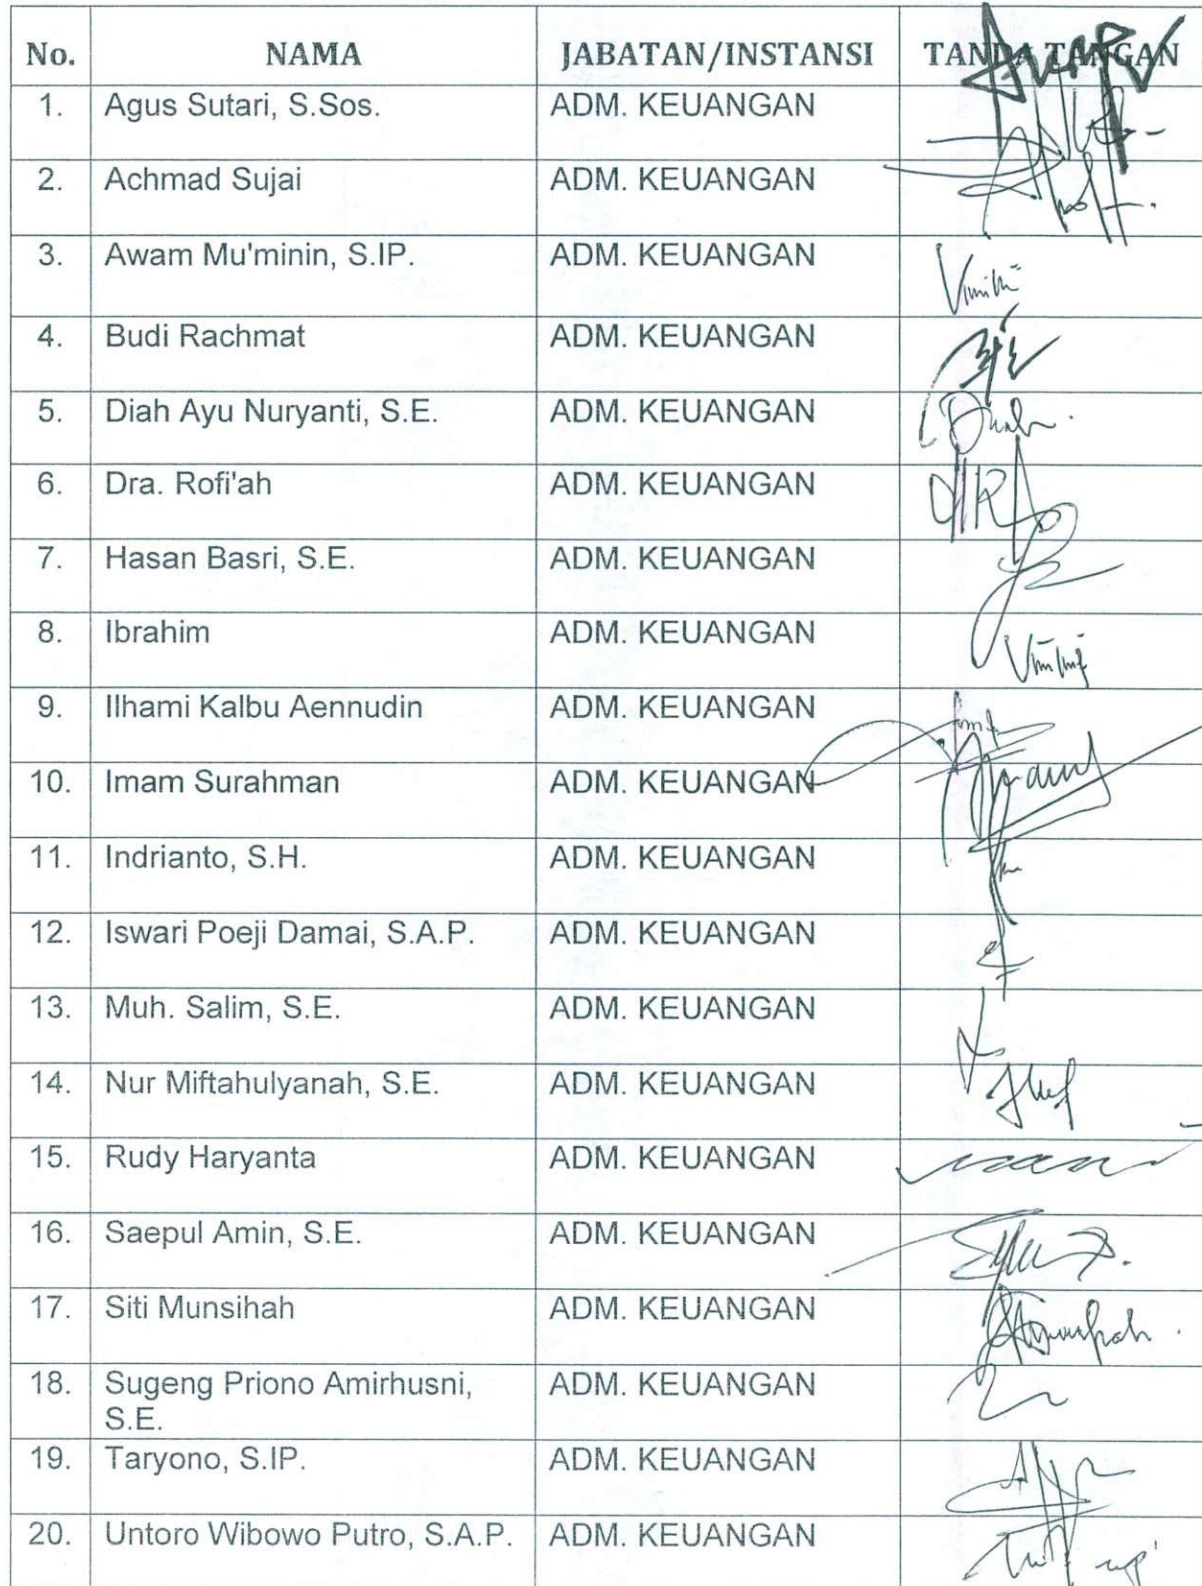 No. NAMA JABATAN/INSTANSI TANDA TANGAN
1. Agus Sutari, S.Sos. ADM. KEUANGAN
2. Achmad Sujai ADM. KEUANGAN
3. Awam Mu'minin, S.IP. ADM. KEUANGAN
4. Budi Rachmat ADM. KEUANGAN
5. Diah Ayu Nuryanti, S.E. ADM. KEUANGAN
6. Dra. Rofi'ah ADM. KEUANGAN
7. Hasan Basri, S.E. ADM. KEUANGAN
8. Ibrahim ADM. KEUANGAN
9. Ilhami Kalbu Aennudin ADM. KEUANGAN
10. Imam Surahman ADM. KEUANGAN
11. Indrianto, S.H. ADM. KEUANGAN
12. Iswari Poeji Damai, S.A.P. ADM. KEUANGAN
13. Muh. Salim, S.E. ADM. KEUANGAN
14. Nur Miftahulyanah, S.E. ADM. KEUANGAN
15. Rudy Haryanta ADM. KEUANGAN
16. Saepul Amin, S.E. ADM. KEUANGAN
17. Siti Munsihah ADM. KEUANGAN
18. Sugeng Priono Amirhusni, ADM. KEUANGAN
S.E.
19. Taryono, S.IP. ADM. KEUANGAN
20. Untoro Wibowo Putro, S.A.P. ADM. KEUANGAN